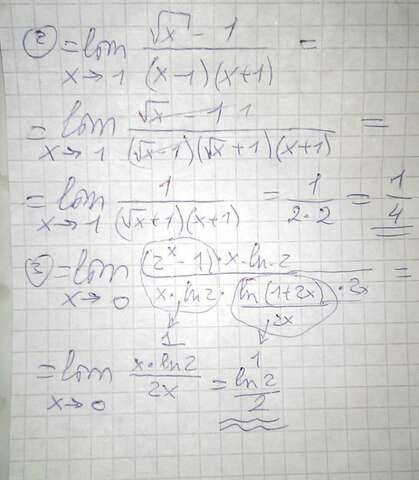 ② = lim_{x→1} (√x - 1)/((x-1)(x+1)) =
= lim_{x→1} (√x - 1 1)/((√x-1)(√x+1)(x+1)) =
= lim_{x→1} 1/((√x+1)(x+1)) = 1/(2·2) = 1/4
③ = lim_{x→0} ((2^x-1)·x·ln·2)/(x·ln2·(ln(1+2x)/2x)·2x) =
1 1
= lim_{x→0} (x·ln2)/(2x) = ln2/2